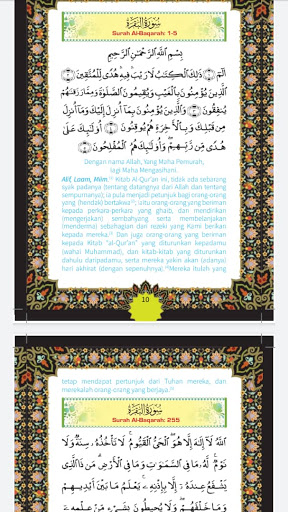 سُورَةُ الْبَقَرَةِ
Surah Al-Baqarah: 1-5
بِسْمِ اللَّهِ الرَّحْمَٰنِ الرَّحِيمِ
الٓمٓ ۝١ ذَٰلِكَ الْكِتَابُ لَا رَيْبَ ۛ فِيهِ ۛ هُدًى لِّلْمُتَّقِينَ ۝٢
الَّذِينَ يُؤْمِنُونَ بِالْغَيْبِ وَيُقِيمُونَ الصَّلَاةَ وَمِمَّا رَزَقْنَاهُمْ
يُنفِقُونَ ۝٣ وَالَّذِينَ يُؤْمِنُونَ بِمَا أُنزِلَ إِلَيْكَ وَمَا أُنزِلَ
مِن قَبْلِكَ وَبِالْآخِرَةِ هُمْ يُوقِنُونَ ۝٤ أُولَٰئِكَ عَلَىٰ
هُدًى مِّن رَّبِّهِمْ ۖ وَأُولَٰئِكَ هُمُ الْمُفْلِحُونَ ۝٥
Dengan nama Allah, Yang Maha Pemurah,
lagi Maha Mengasihani.
Alif, Laam, Miim. Kitab Al-Qur'an ini, tidak ada sebarang
syak padanya (tentang datangnya dari Allah dan tentang
sempurnanya), ia pula menjadi petunjuk bagi orang-orang
yang (hendak) bertakwa; Iaitu orang-orang yang beriman
kepada perkara-perkara yang ghaib, dan mendirikan
(mengerjakan) sembahyang serta membelanjakan
(menderma) sebahagian dari rezeki yang Kami berikan
kepada mereka. Dan juga orang-orang yang beriman
kepada Kitab "al-Qur'an" yang diturunkan kepadamu
(wahai Muhammad), dan kitab-kitab yang diturunkan
dahulu daripadamu, serta mereka yakin akan (adanya)
hari akhirat (dengan sepenuhnya). Mereka itulah yang
10
tetap mendapat petunjuk dari Tuhan mereka, dan
merekalah orang-orang yang berjaya.
سُورَةُ الْبَقَرَةِ
Surah Al-Baqarah: 255
اللَّهُ لَا إِلَٰهَ إِلَّا هُوَ الْحَيُّ الْقَيُّومُ ۚ لَا تَأْخُذُهُ سِنَةٌ وَلَا
نَوْمٌ ۚ لَّهُ مَا فِي السَّمَاوَاتِ وَمَا فِي الْأَرْضِ ۗ مَن ذَا الَّذِي
يَشْفَعُ عِندَهُ إِلَّا بِإِذْنِهِ ۚ يَعْلَمُ مَا بَيْنَ أَيْدِيهِمْ
وَمَا خَلْفَهُمْ ۖ وَلَا يُحِيطُونَ بِشَيْءٍ مِّنْ عِلْمِهِ